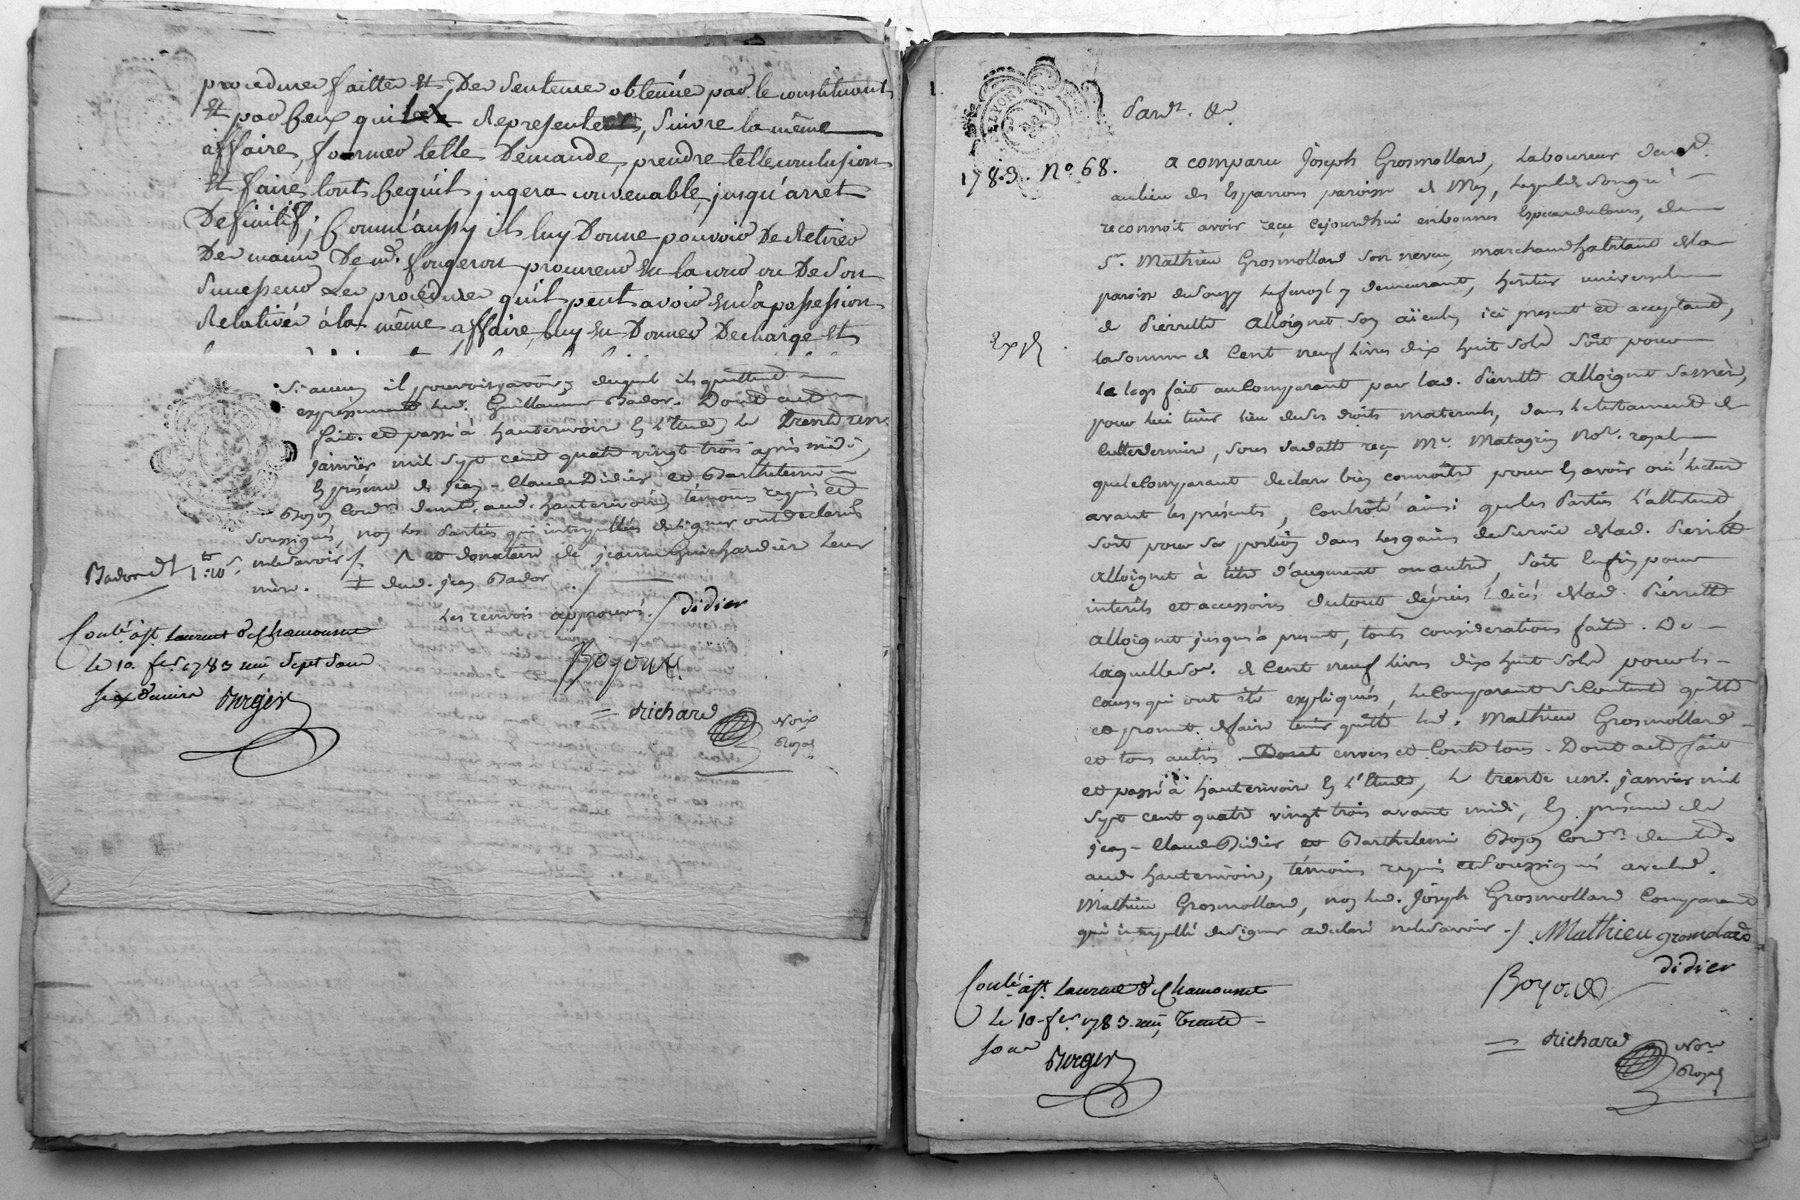 procedures faittes et Des Sentences obtenües par le constituant
et par Ceux qui les Representent, Suivre la même
affaire, former telle Demande, prendre telle conclusions
et faire tout Cequ'il jugera convenable, jusqu'arret
Definitif; Comm'aussy il luy Donne pouvoir De Retirer
Des mains De me. fougeron procureur en la cour ou De Son
Successeur Les procedures qu'il peut avoir en Sa possession
Relatives à la même affaire, luy en Donner Decharge et
Si aucuns il pouvoit y avoir, duquel ils quittent
expressement led. Guillaume Bador. Dont acte
fait et passé à hauterivoire En l'Etude, le trente un
janvier mil sept cent quatre vingt trois après midi,
En présence de jean-Claude Didier et Barthelemi
Boyon Cord.rs demt. aud. hauterivoire, témoins requis et
Soussignés, non les Parties qui interpellées de signer ont declaré
ne le savoir /. et donataire de jeanne Guichardier leur
mère. ‡ dud. jean Bador ./.
Les renvois approuvés. / didier
Boyon
= Richard Nore
Royal
Conlé. à St. Laurent de Chamousset
le 10 fer. 1783 reçu Sept Sous
Six deniers Berger
Pardt. &a.
1783. No 68.
a comparu Joseph Grosmolland, Laboureur demt.
au lieu des Esparrons paroisse de Mey, lequel de son gré
reconnoit avoir reçu cejourdhui en bonnes Especes de cours, de
Sr. Mathieu Grosmolland Son neveu, marchand habitant de la
paroisse du Souzy y demeurant, héritier universel
de Pierrette Alloignet son aïeule, ici présent et acceptant,
Exp.
la somme de Cent neuf livres dix huit sols Soit pour
le legs fait au Comparant par lad. Pierrette Alloignet Sa mère,
pour lui tenir lieu de ses droits maternels, dans le testament de
cette dernière, sous sa datte reçu Me. Matagrin Nore. royal
que le Comparant declare bien connoitre pour En avoir oui lecture
avant les présentes, Contrôlé ainsi que les Parties l'attestent,
Soit pour Sa portion dans les gains de Survie de lad. Pierrette
Alloignet à titre d'augment ou autre, Soit Enfin pour
intérêts et accessoires du tout depuis l décès de lad. Pierrette
Alloignet jusques à présent, toutes considerations faites. De
laquelle Some. de Cent neuf livres dix huit Sols pour les
causes qui ont été expliquées, le Comparant Se Contente quitte
et promet de faire tenir quitte led. Mathieu Grosmolland
et tous autres Dont envers et Contre tous. Dont acte fait
et passé à hauterivoire En l'Etude, le trente un janvier mil
Sept cent quatre vingt trois avant midi, En présence de
jean-Claude Didier et Barthelemi Boyon Cord.rs demts.
aud. hauterivoire, témoins requis et Soussignés avec led.
Mathieu Grosmolland, non led. Joseph Grosmolland Comparant
qui interpellé de signer a declaré ne le savoir ./. Mathieu gromolard
Boyon didier
= Richard Nore
Royal
Conlé. à St. Laurent de Chamousset
le 10 fer. 1783 reçu Trente
Sous Berger